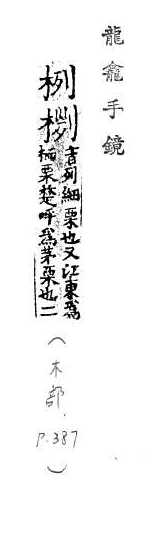 龍龕手鏡
栵
音列細栗也又江東為
栭栗楚呼為茅栗也二
(木部 P.387)